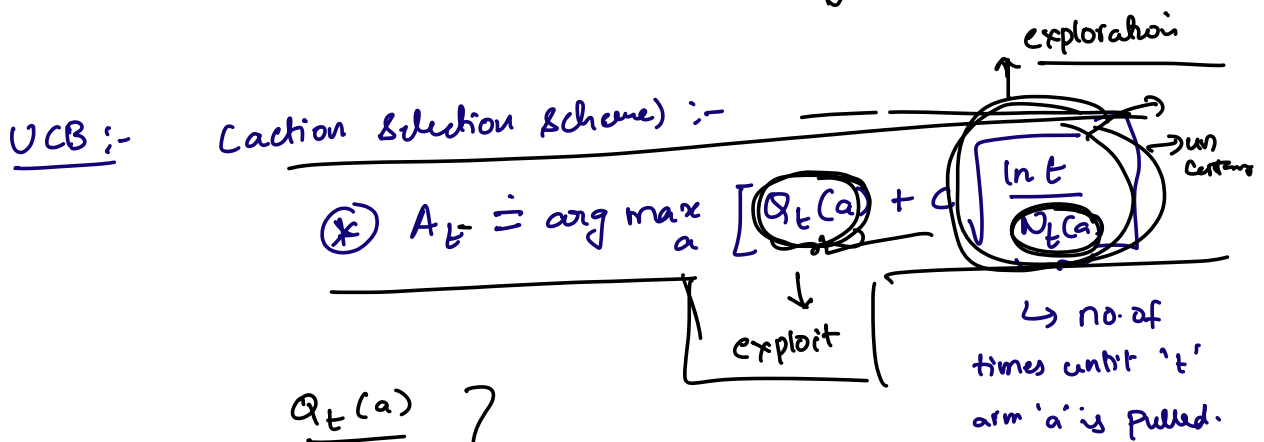 exploration
UCB :- (action Selection Scheme) :-
→ un certainty
⊛ A_t ≐ arg max_a [Q_t(a) + c √(ln t / N_t(a))]
↓ ↳ no. of
exploit times until 't'
Q_t(a) ? arm 'a' is pulled.